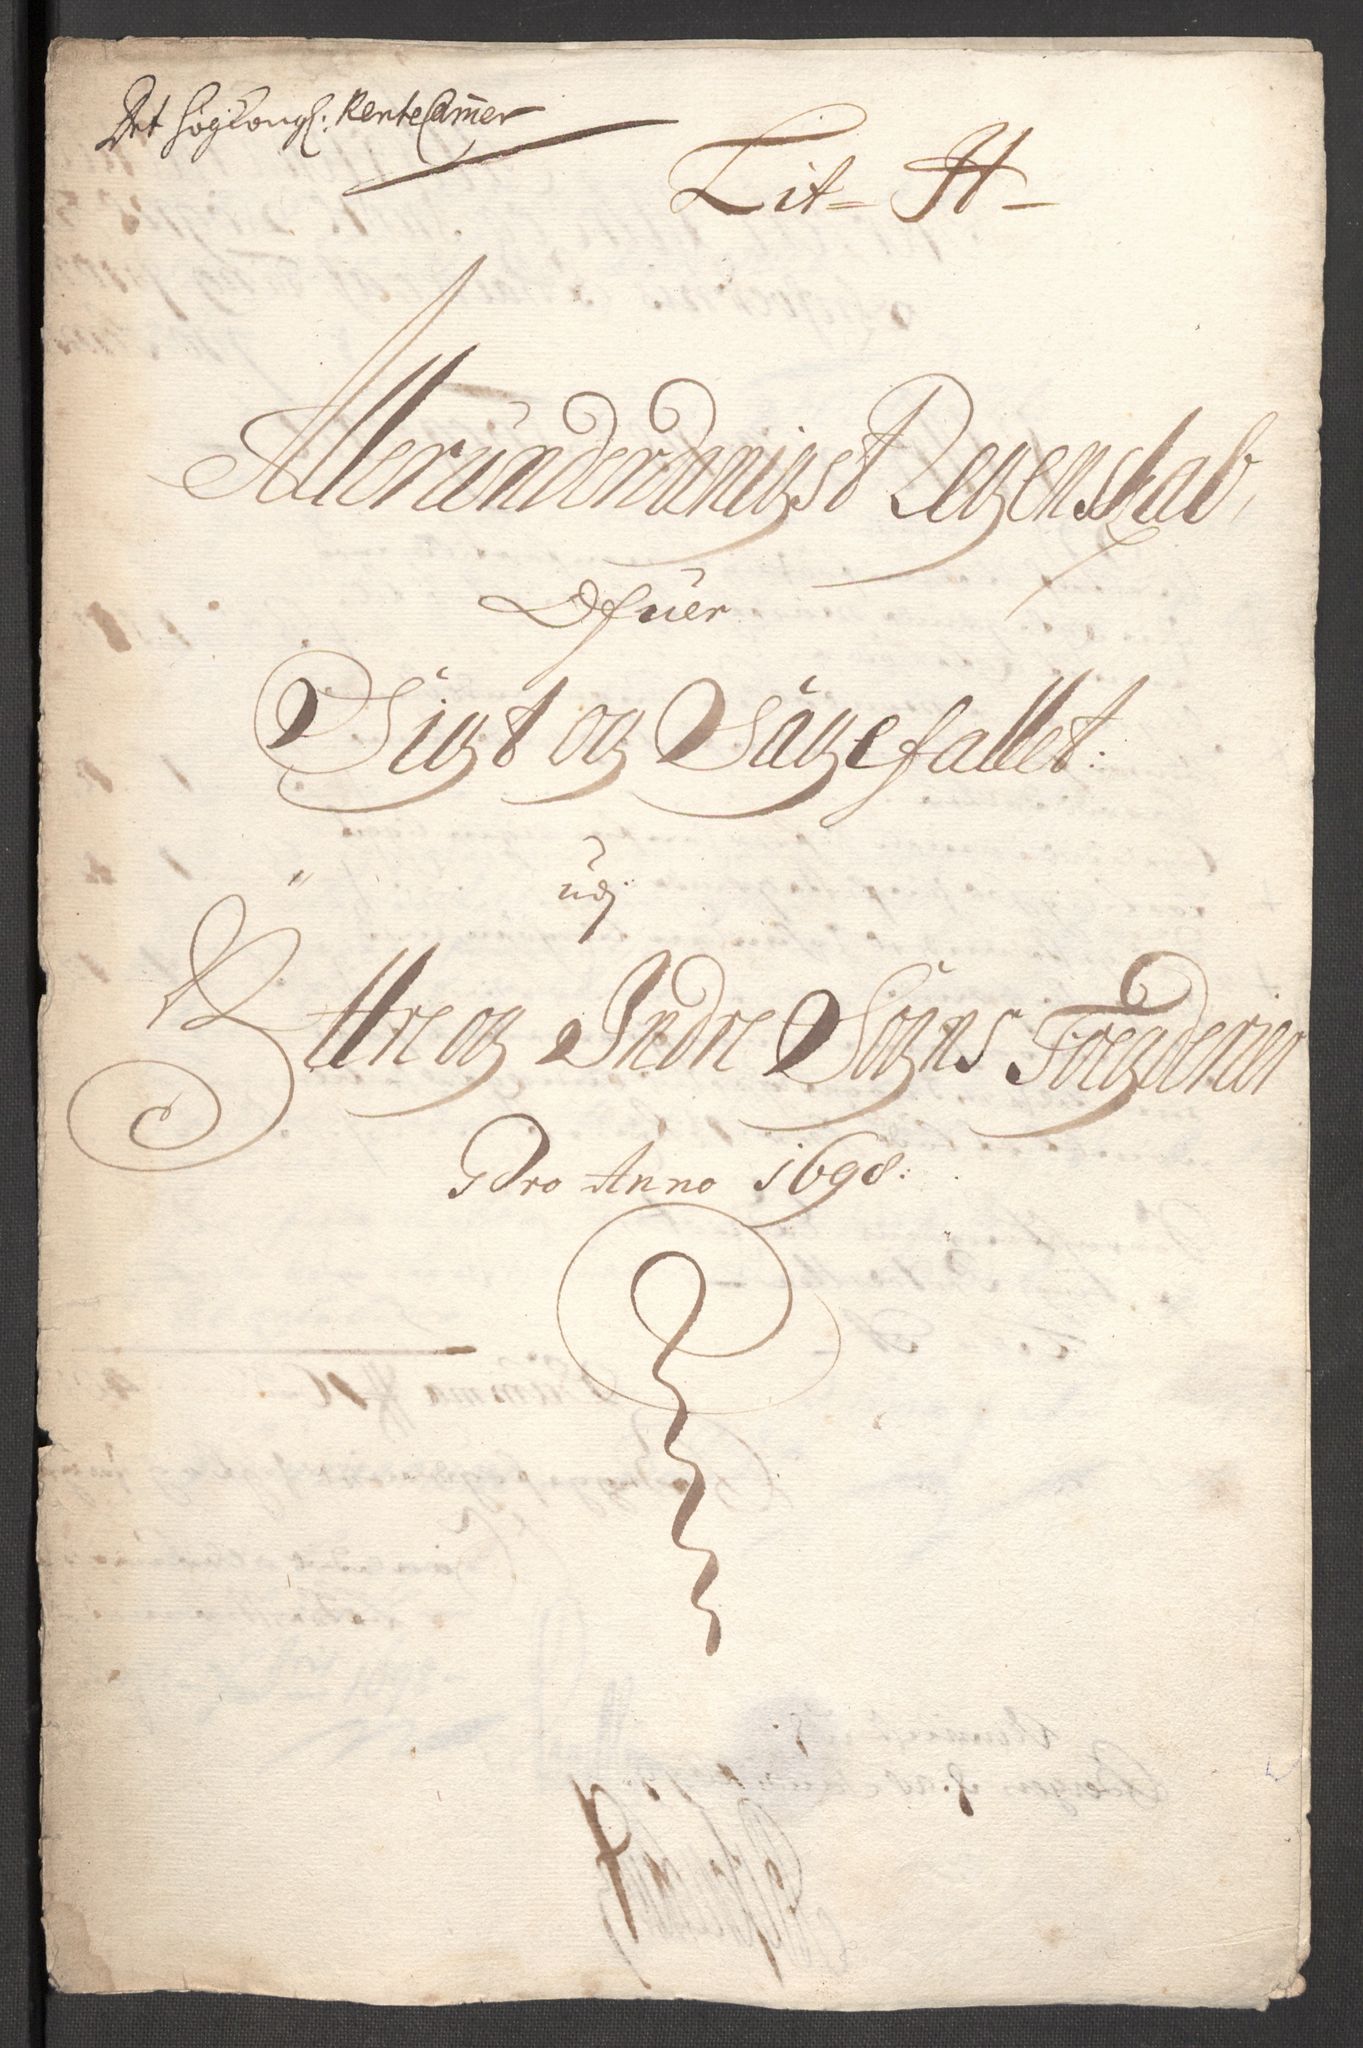 Det höyKongl: RenteCamer
Lit= H-
Alleründerdanigst Regenskab,
Ofuer
Sigt og Sagefallet:
udj
Ÿttre og Indre Sogns Foegderier
Pro Anno 1698: